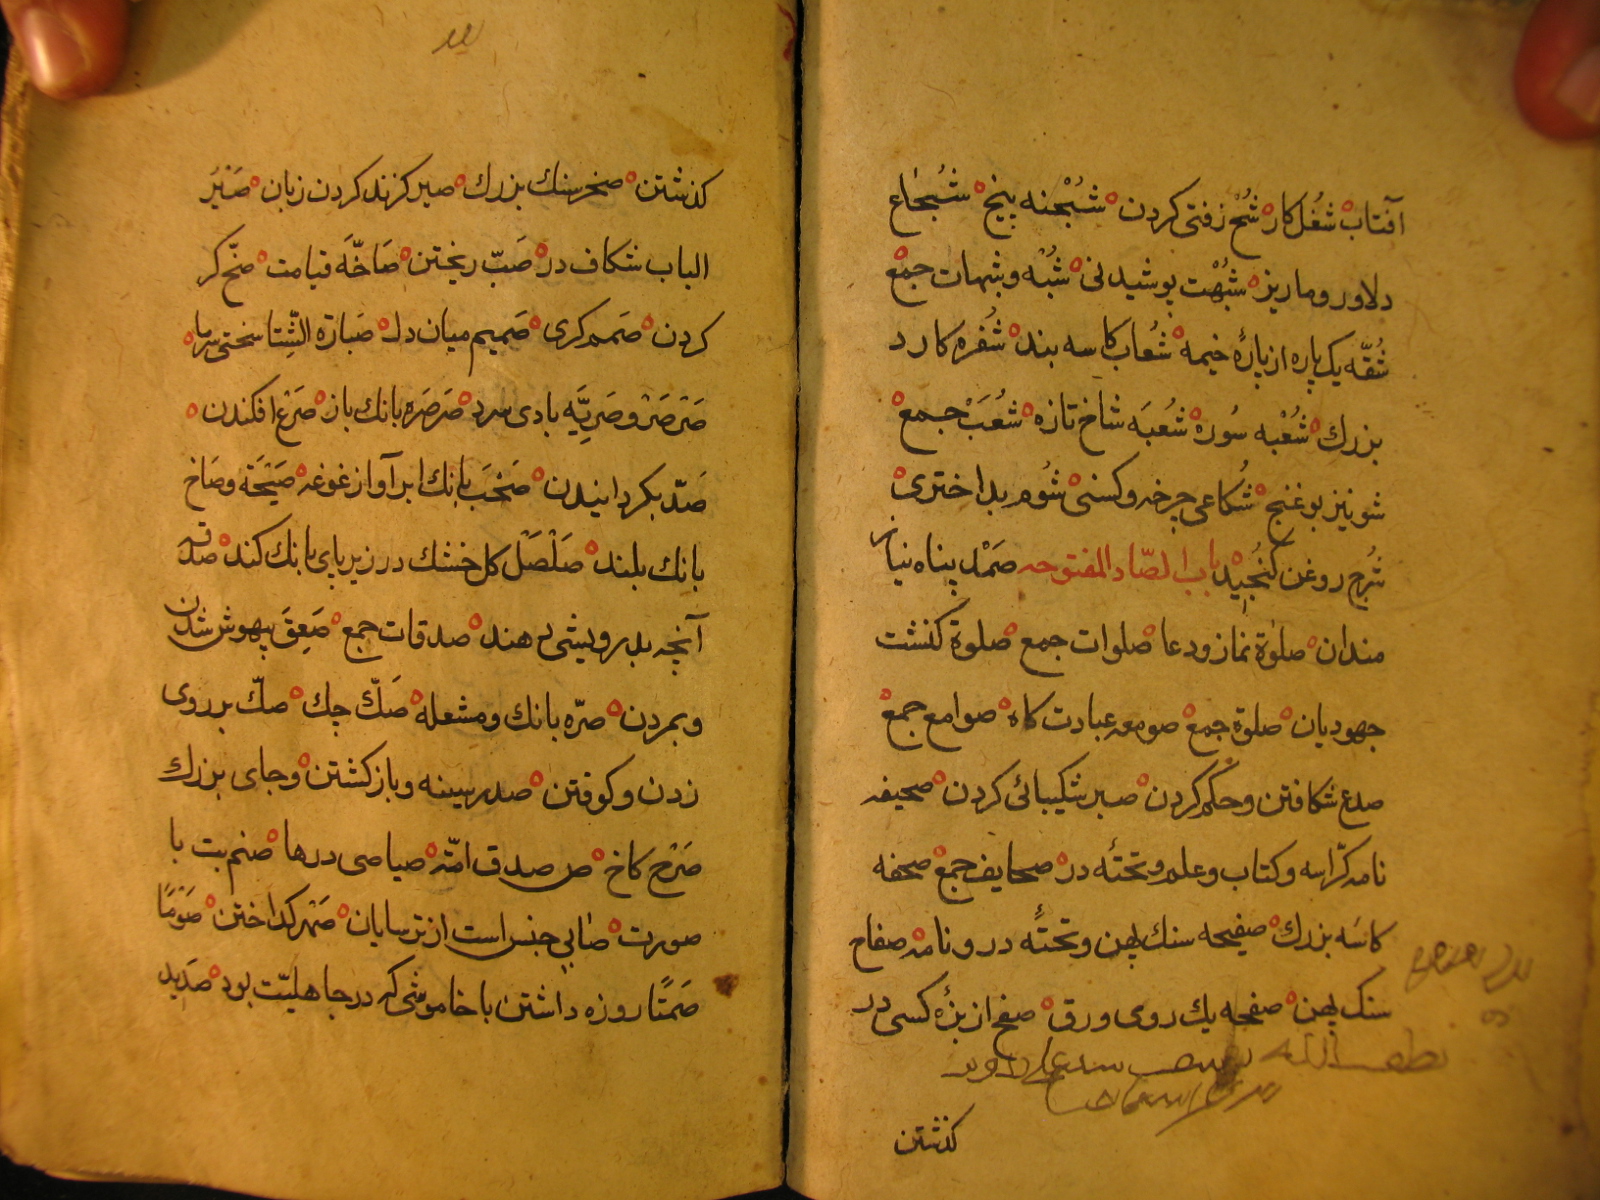 آفتاب شُغُل كار شُحّ زفتى كردن شَبْجنه پنج شُجاع
دلاور و مار يز شُبْهت پوشيدنى شُبْه و شبهات جمع
شُقّه يک پاره از پارۀ خيمه شُعاب كاسه بند شُفره كارد
بزرك شُعْبه سُوره شُعبَه شاخ تازه شُعَبْ جمع
شونيز بوغنج شُكاعى چرخه و كسنى شُوم بد اخترى
شَيرج روغن كُنجيد باب الصّاد المفتوحه صَمْد پناه نياز
مندان صلوٰة نماز و دعا صلوات جمع صلوة كنشت
جهوديان صلوة جمع صومعه عبادت كاه صوامع جمع
صدع شكافتن و حكم كردن صبر شكيبائى كردن صحيفه
نامه كرّاسه و كتاب و علم و تختۀ در صحايف جمع صحفه
كاسَه بزرك صفيحه سنك پهن و تختۀ در و نامه صفاح
سنک پهن صفحه يك روى ورق صفح از بزۀ كسى در
كذشتن
كذشتن صخر سنك بزرك صبر كزند كردن زبان صَئيرُ
الباب شكاف در صَبّ ريختن صَاخّه قيامت صخّ كر
كردن صَمم كرى صَميم ميان دل صَبارة الشِّتا سختى سرما
صَرْصَرْ و صَرِيَّه بادى سرد صَرصَره بانك باز صَرْع افكندن
صَدّ بكردانيدن صَخَب بانك ابر آواز غوغه صَيْحَة و صَاخ
بانك بلند صَلْصَل كل خشك در زير پاى بانك كند صدقه
آنچه بدرويشى دهند صدقات جمع صَعِقَ بيهوش شدن
و بمردن صرّه بانك و مشعله صَكّ چك صكّ بر روى
زدن و كوفتن صدر سينه و باز كشتن و جاى بزرك
صَرْح كاخ ص صدق اللّه صياصى درها صنم بت با
صورت صَابى جنس است از ترسايان صَهْر كداختن صَوْمًا
صَمتًا روزه داشتن با خاموشى كه در جاهليّت بود صَديد